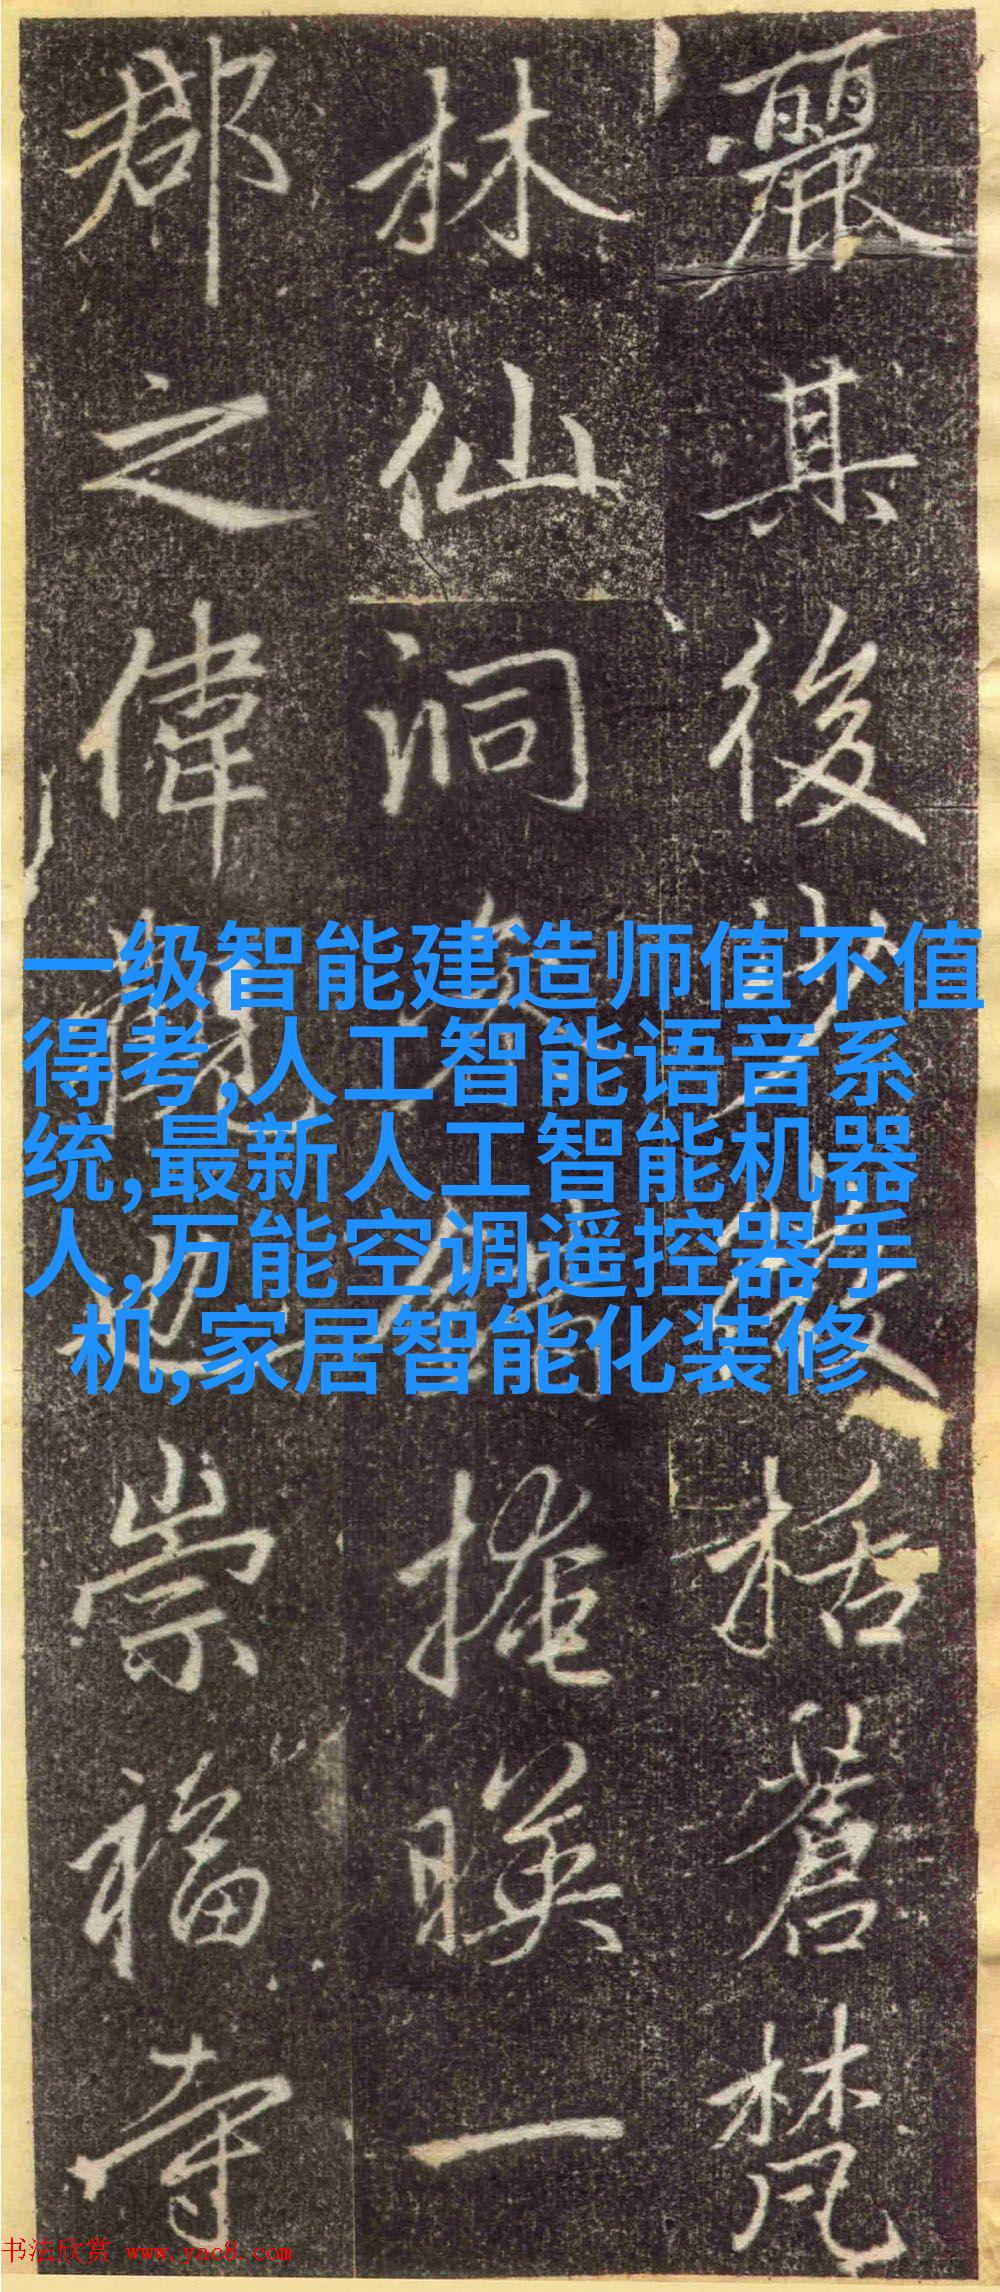 麗其後少括蒼梵
林仙洞掩暎一
郡之偉觀也崇福寺
一级智能建造师值不值
得考,人工智能语音系
统,最新人工智能机器
人,万能空调遥控器手
机,家居智能化装修
书法欣赏 www.yac8.com